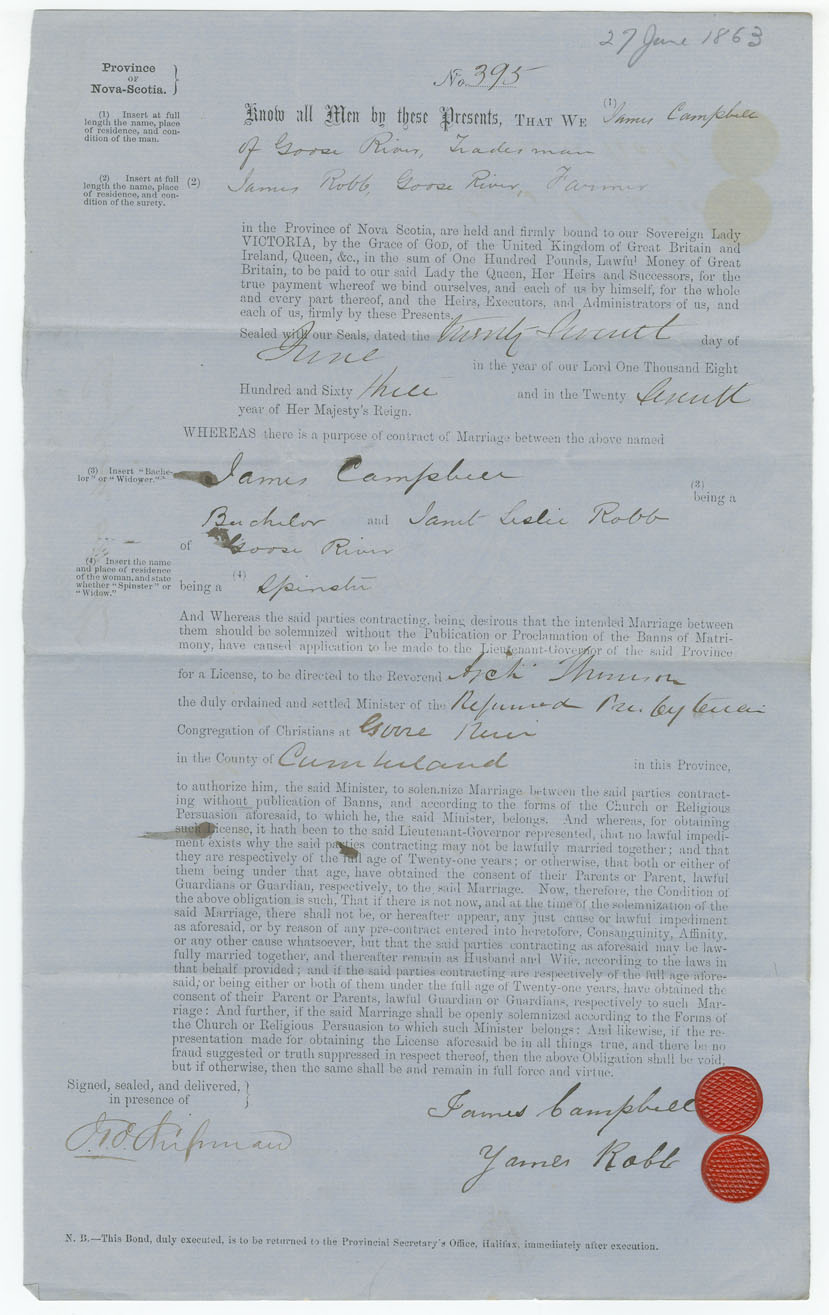 27 June 1863
Province
OF
Nova-Scotia.
No. 395
(1) Insert at full
length the name, place
of residence, and con-
dition of the man.
Know all Men by these Presents, THAT WE (1) James Campbell
of Goose River, Tradesman
(2) Insert at full
length the name, place
of residence, and con-
dition of the surety.
(2) James Robb, Goose River, Farmer
in the Province of Nova Scotia, are held and firmly bound to our Sovereign Lady
VICTORIA, by the Grace of GOD, of the United Kingdom of Great Britain and
Ireland, Queen, &c., in the sum of One Hundred Pounds, Lawful Money of Great
Britain, to be paid to our said Lady the Queen, Her Heirs and Successors, for the
true payment whereof we bind ourselves, and each of us by himself, for the whole
and every part thereof, and the Heirs, Executors, and Administrators of us, and
each of us, firmly by these Presents.
Sealed with our Seals, dated the Twenty-Seventh day of
June in the year of our Lord One Thousand Eight
Hundred and Sixty three and in the Twenty Seventh
year of Her Majesty's Reign.
WHEREAS there is a purpose of contract of Marriage between the above named
(3) Insert "Bache-
lor" or "Widower."
James Campbell (3) being a
Bachelor and Janet Leslie Robb
of Goose River
(4) Insert the name
and place of residence
of the woman, and state
whether "Spinster" or
"Widow."
being a (4) Spinster
And Whereas the said parties contracting, being desirous that the intended Marriage between
them should be solemnized without the Publication or Proclamation of the Banns of Matri-
mony, have caused application to be made to the Lieutenant-Governor of the said Province
for a License, to be directed to the Reverend Arch Thomson
the duly ordained and settled Minister of the Reformed Presbyterian
Congregation of Christians at Goose River
in the County of Cumberland in this Province,
to authorize him, the said Minister, to solemnize Marriage between the said parties contract-
ing without publication of Banns, and according to the forms of the Church or Religious
Persuasion aforesaid, to which he, the said Minister, belongs. And whereas, for obtaining
such License, it hath been to the said Lieutenant-Governor represented, that no lawful impedi-
ment exists why the said parties contracting may not be lawfully married together; and that
they are respectively of the full age of Twenty-one years; or otherwise, that both or either of
them being under that age, have obtained the consent of their Parents or Parent, lawful
Guardians or Guardian, respectively, to the said Marriage. Now, therefore, the Condition of
the above obligation is such, That if there is not now, and at the time of the solemnization of the
said Marriage, there shall not be, or hereafter appear, any just cause or lawful impediment
as aforesaid, or by reason of any pre-contract entered into heretofore, Consanguinity, Affinity,
or any other cause whatsoever, but that the said parties contracting as aforesaid may be law-
fully married together, and thereafter remain as Husband and Wife, according to the laws in
that behalf provided; and if the said parties contracting are respectively of the full age afore-
said, or being either or both of them under the full age of Twenty-one years, have obtained the
consent of their Parent or Parents, lawful Guardian or Guardians, respectively to such Mar-
riage: And further, if the said Marriage shall be openly solemnized according to the Forms of
the Church or Religious Persuasion to which such Minister belongs: And likewise, if the re-
presentation made for obtaining the License aforesaid be in all things true, and there be no
fraud suggested or truth suppressed in respect thereof, then the above Obligation shall be void,
but if otherwise, then the same shall be and remain in full force and virtue.
Signed, sealed, and delivered,
in presence of
James Campbell
James Robb
N. B.—This Bond, duly executed, is to be returned to the Provincial Secretary's Office, Halifax, immediately after execution.